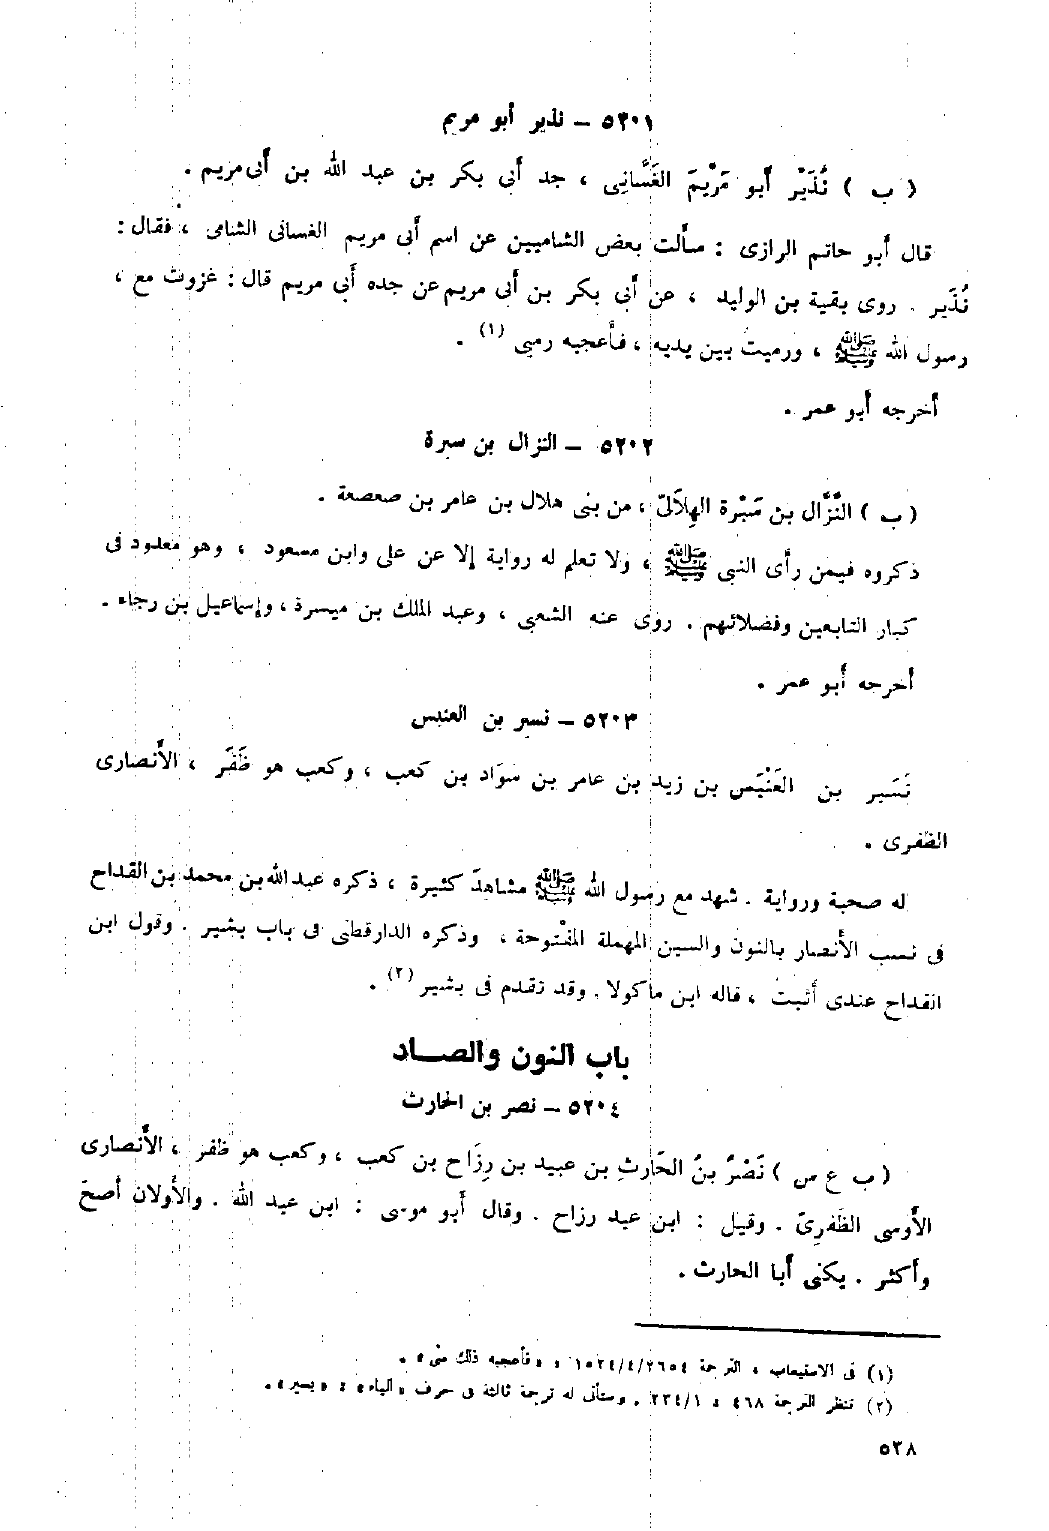 ٥٢٠١ – نذير أبو مريم
( ب ) نُذَيْر أبو مَرْيمَ الغَسَّانِى ، جد أبى بكر بن عبد الله بن أبى مريم .
قال أبو حاتم الرازى : سألت بعض الشاميين عن اسم أبى مريم الغسانى الشامى ، فقال :
نُذَير . روى بقية بن الوليد ، عن أبى بكر بن أبى مريم عن جده أبى مريم قال : غزوت مع ،
رسول الله ﷺ ، ورميت بين يديه ، فأعجبه رميى (١) .
أخرجه أبو عمر .
٥٢٠٢ – النزال بن سبرة
( ب ) النَّزَّال بن سَبْرة الهِلَالىّ ، من بنى هلال بن عامر بن صعصعة .
ذكروه فيمن رأى النبى ﷺ ، ولا تعلم له رواية إلا عن على وابن مسعود ، وهو معدود فى
كبار التابعين وفضلائهم . روى عنه الشعبى ، وعبد الملك بن ميسرة ، وإسماعيل بن رجاء .
أخرجه أبو عمر .
٥٢٠٣ – نسير بن العنبس
نَسَير بن العَنْبَس بن زيد بن عامر بن سوَاد بن كعب ، وكعب هو ظَفَر ، الأنصارى
الظفرى .
له صحبة ورواية . شهد مع رسول الله ﷺ مشاهدَ كثيرة ، ذكره عبد الله بن محمد بن القداح
فى نسب الأنصار بالنون والسين المهملة المفْتوحة ، وذكره الدارقطنى فى باب بشير . وقول ابن
القداح عندى أثبت ، قاله ابن ماكولا . وقد تقدم فى بشير (٢) .
باب النون والصاد
٥٢٠٤ – نصر بن الحارث
( ب ع س ) نَصْرُ بنُ الحَارثِ بن عبيد بن رِزَاح بن كعب ، وكعب هو ظفر ، الأنصارى
الأوسى الظَفرِىّ . وقيل : ابن عبد رزاح . وقال أبو موسى : ابن عبد الله . والأولان أصحّ
وأكثر . يكنى أبا الحارث .
(١) فى الاستيعاب ، الترجمة ١٥٢٤/٤/٢٦٥٤ : «فأعجبه ذلك منى» .
(٢) تنظر الترجمة ٤٦٨ : ٢٣٤/١ . وستأتى له ترجمة ثالثة فى حرف «الياء» : «يسير» .
٥٣٨